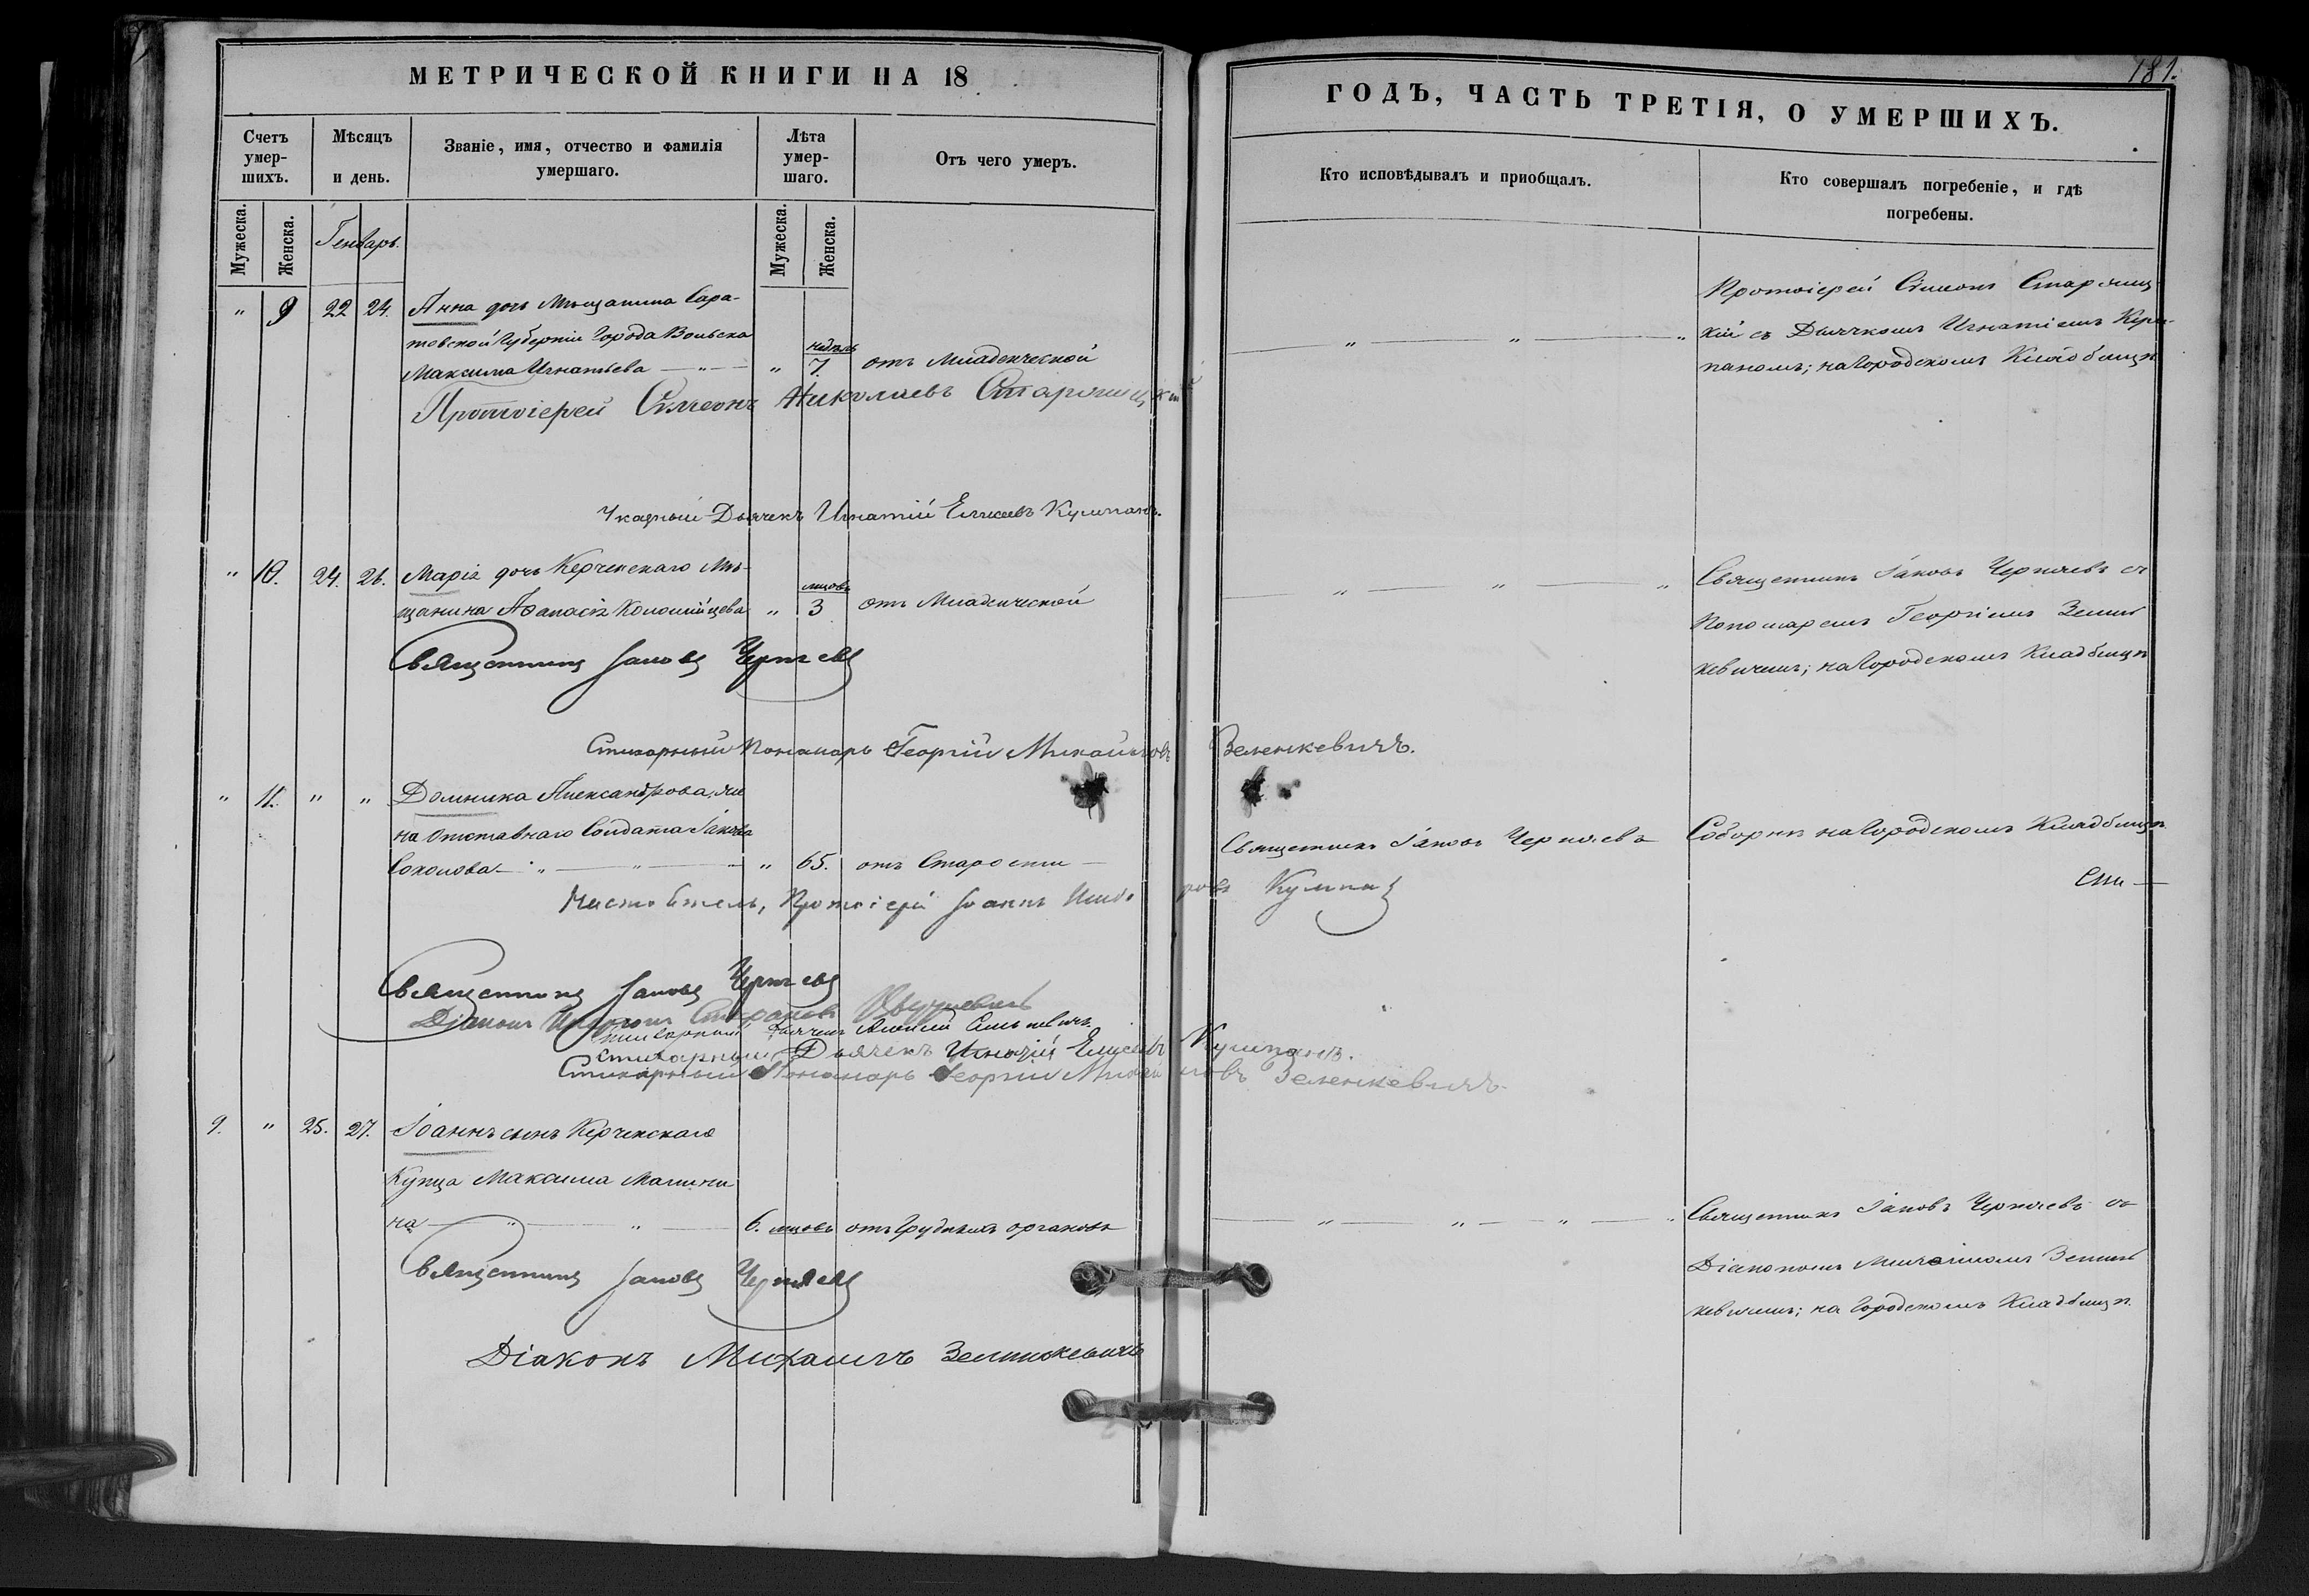 МЕТРИЧЕСКОЙ КНИГИ НА 18
Счетъ умер-шихъ.
Мѣсяцъ и день.
Званіе, имя, отчество и фамилія умершаго.
Лѣта умер-шаго.
Отъ чего умеръ.
Мужеска.
Женска.
Генварь.
Мужеска.
Женска.
" 9 22 24. Анна дочь Мѣщанина Сара-
товской Губерніи Города Вольска недѣль
Максима Игнатьева — " — " 7. отъ Младенческой
Протоіерей Симеонъ Николаевъ Старомицкій
Указный Дьячекъ Игнатій Елисеевъ Кушпанъ.
" 10. 24. 26. Марія дочь Керченскаго Мѣ-
мцовъ
щанина Аѳанасія Коломійцева " 3 отъ Младенческой
Священникъ Іаковъ Черняевъ
Стихарный Пономарь Георгій Михайловъ Зеленкевичъ.
" 11. " " Домника Александрова, же
на Отставнаго Солдата Іакова
Соколова — " — " — " 65. отъ Старости —
Настоятель, Протоіерей Іоаннъ
Священникъ Іаковъ Черняевъ
Діаконъ
Стихарный Дьячекъ Алексій
Стихарный Дьячекъ Игнатій Елисеевъ Кушпанъ.
Стихарный Пономарь Георгій Михайловъ Зеленкевичъ.
9. " 25. 27. Іоаннъ сынъ Керченскаго
Купца Максима Малини
на — " — " — 6. мцовъ отъ Грудныхъ органовъ
Священникъ Іаковъ Черняевъ
Діаконъ Михаилъ Зелинкевичъ
181.
ГОДЪ, ЧАСТЬ ТРЕТІЯ, О УМЕРШИХЪ.
Кто исповѣдывалъ и приобщалъ.
Кто совершалъ погребеніе, и гдѣ погребены.
Протоіерей Сімеонъ Старомиц-
— " — " — " кій съ Дьячкомъ Игнатіемъ Куш-
паномъ; на Городскомъ Кладбищѣ
— " — " — " Священникъ Іаковъ Черняевъ съ
Пономаремъ Георгіемъ Зелин
кевичемъ; на Городскомъ Кладбищѣ
Священникъ Іаковъ Черняевъ Соборнѣ на Городскомъ Кладбищѣ
— " — " — " — " Священникъ Іаковъ Черняевъ съ
Діакономъ Михаиломъ Зелин
кевичемъ; на Городскомъ Кладбищѣ.